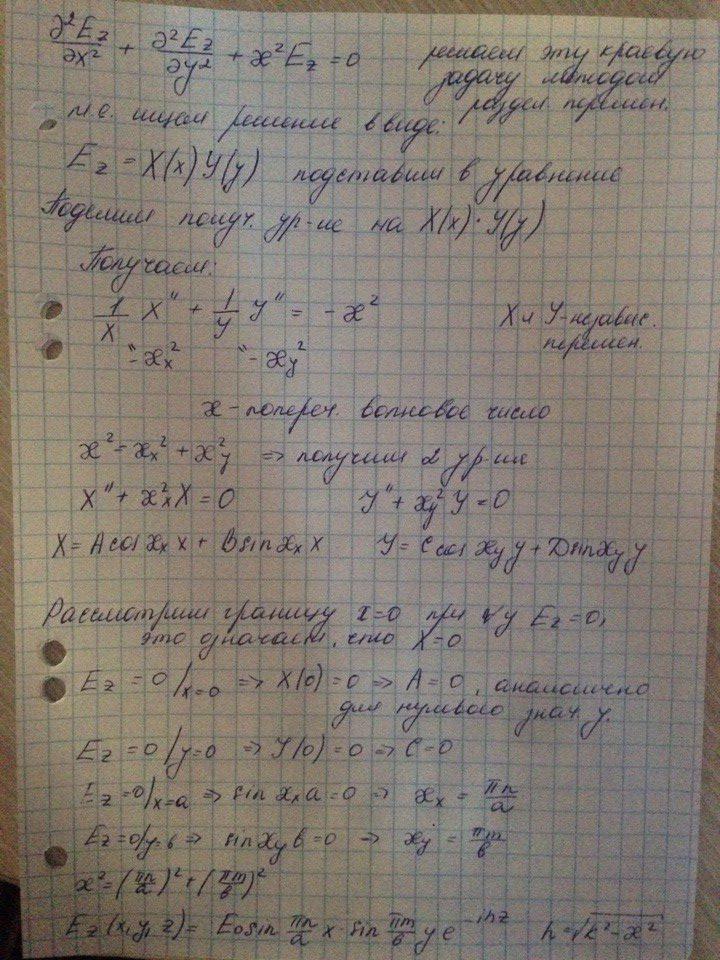 ∂²E_z/∂x² + ∂²E_z/∂y² + æ²E_z = 0 решаем эту краевую
задачу методом
раздел. перемен.
т.е. ищем решение в виде:
E_z = X(x)Y(y) подставим в уравнение
Поделим получ. ур-ие на X(x)·Y(y)
Получаем:
1/X X'' + 1/Y Y'' = -æ² X и Y-независ.
перемен.
"-æ_x² "-æ_y²
æ - попереч. волновое число
æ² = æ_x² + æ_y² => получим 2 ур-ия
X'' + æ_x²X = 0 Y'' + æ_y²Y = 0
X = A cos æ_x x + B sin æ_x x Y = C cos æ_y y + D sin æ_y y
Рассмотрим границу x=0 при ∀y E_z=0,
это означает, что X=0
E_z = 0/x=0 => X(0) = 0 => A = 0, аналогично
для нулевого знач y.
E_z = 0/y=0 => Y(0) = 0 => C=0
E_z=0/x=a => sin æ_x a = 0 => æ_x = πn/a
E_z=0/y=в => sin æ_y в = 0 => æ_y = πm/в
æ² = (πn/a)² + (πm/в)²
E_z(x,y,z) = E₀ sin πn/a x · sin πm/в y e^{-ihz} h = √(k² - æ²)